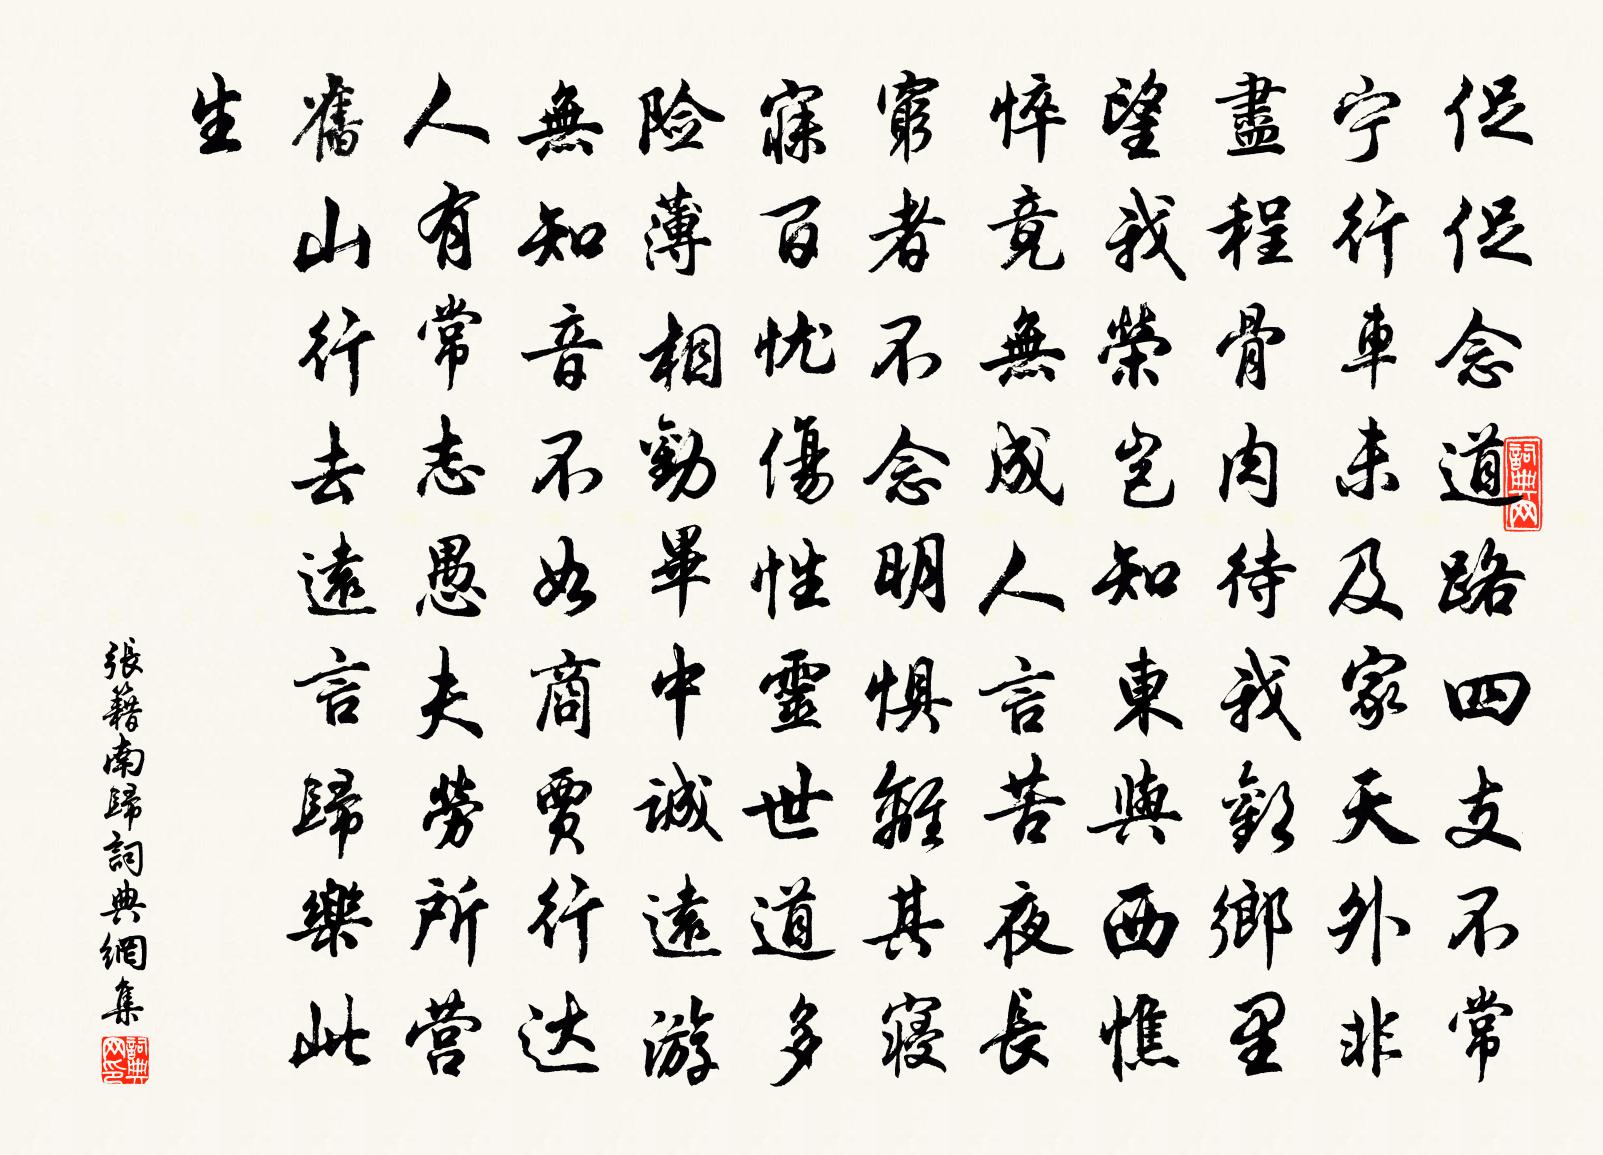 促促念道路四支不常
宁行車未及家天外非
盡程骨肉待我歡鄉里
望我榮豈知東與西憔
悴竟無成人言苦夜長
窮者不念明懼離其寝
寐百忧傷性靈世道多
险薄相勸畢中誠遠游
無知音不如商賈行达
人有常志愚夫勞所营
舊山行去遠言歸樂此
生
張籍南歸詞典網集
詞典网
詞典网印